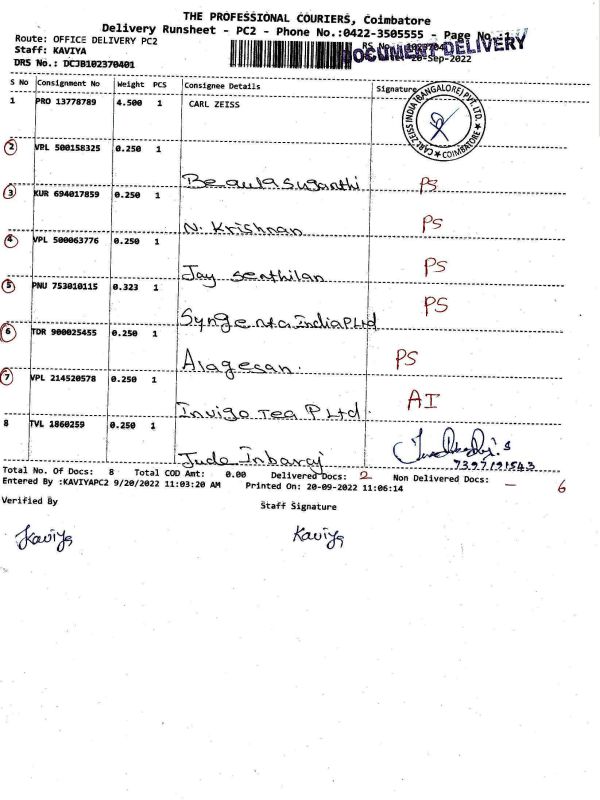 THE PROFESSIONAL COURIERS, Coimbatore
Delivery Runsheet - PC2 - Phone No.:0422-3505555 - Page No.:1
Route: OFFICE DELIVERY PC2
Staff: KAVIYA
DRS No.: DCJB102370401
DOCUMENT DELIVERY
20-Sep-2022
S No Consignment No Weight PCS Consignee Details Signature
1 PRO 13778789 4.500 1 CARL ZEISS
CARL ZEISS INDIA (BANGALORE) PVT. LTD. ★ COIMBATORE ★
2 VPL 500158325 0.250 1
Beaula Suganthi PS
3 KUR 694017859 0.250 1
N. Krishnan PS
4 VPL 500063776 0.250 1
Jay Senthilan PS
5 PNU 753010115 0.323 1
Syngenta India P Ltd PS
6 TDR 900025455 0.250 1
Alagesan. PS
7 VPL 214520578 0.250 1
Invigo Tea P Ltd. AI
8 TVL 1860259 0.250 1
Jude Inbaraj
7397191543
Total No. Of Docs: 8 Total COD Amt: 0.00 Delivered Docs: 2 Non Delivered Docs: - 6
Entered By :KAVIYAPC2 9/20/2022 11:03:20 AM Printed On: 20-09-2022 11:06:14
Verified By Staff Signature
Kaviya Kaviya